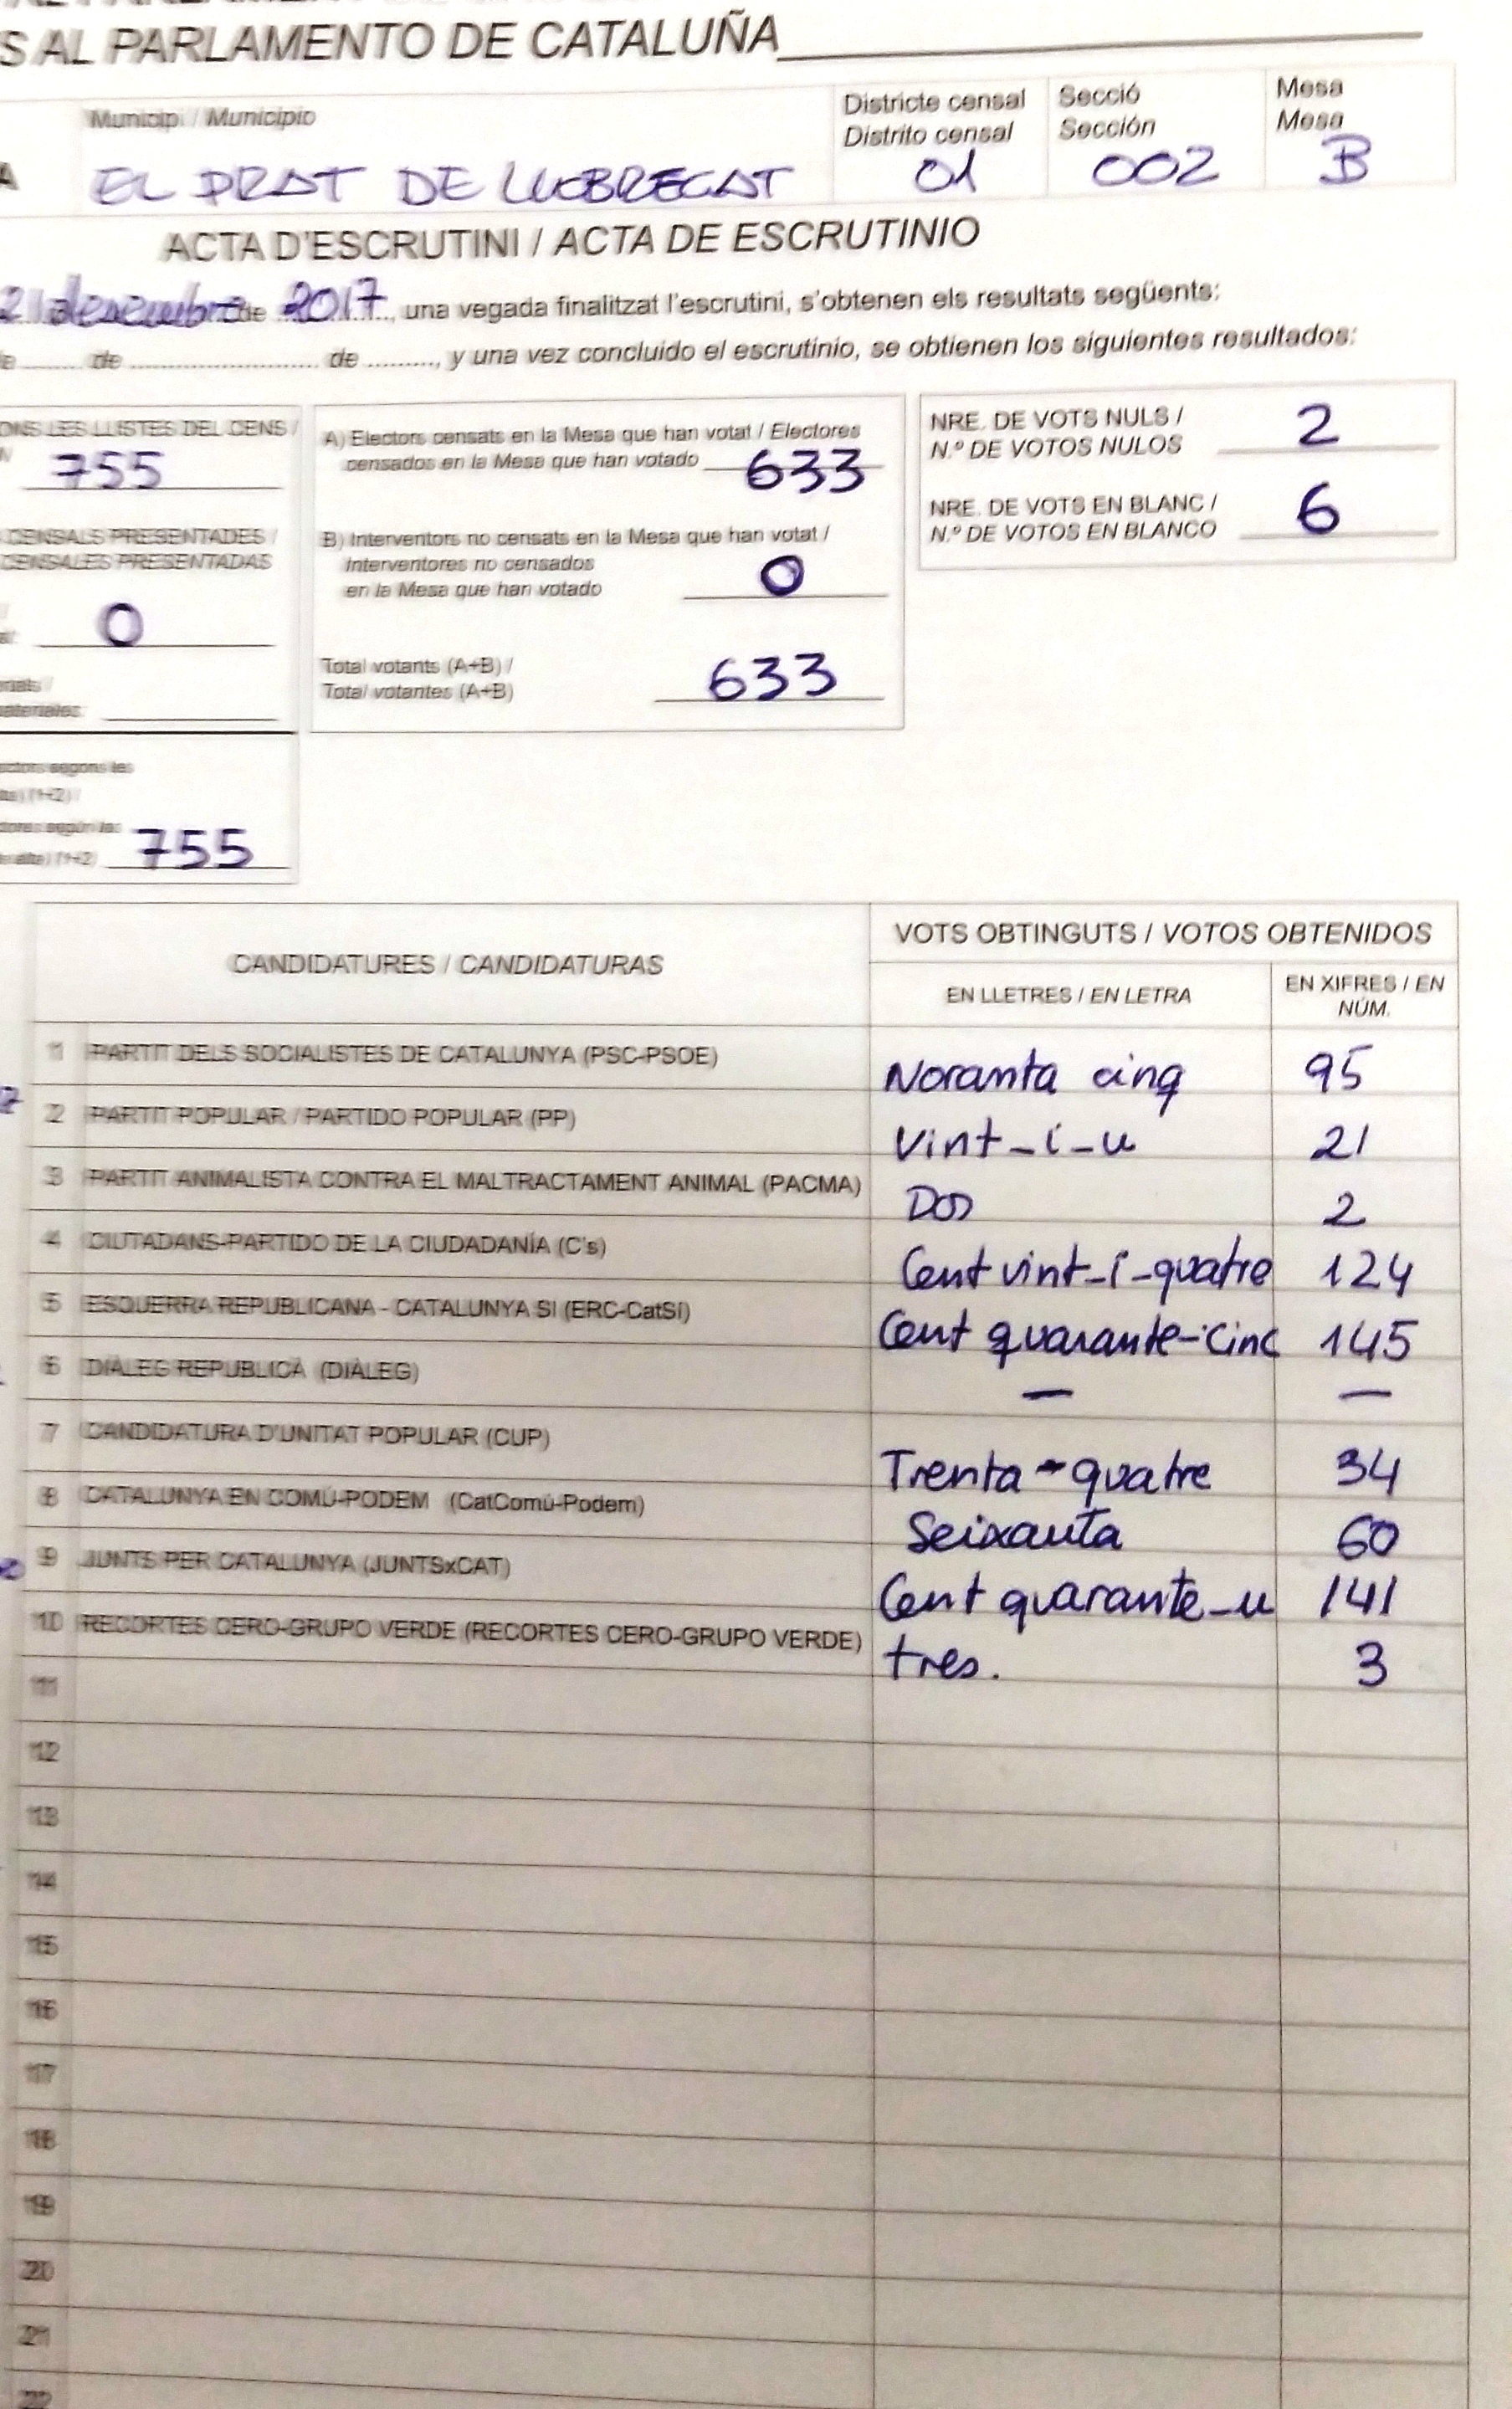 S AL PARLAMENTO DE CATALUÑA
Municipi / Municipio
Districte censal
Distrito censal
Secció
Sección
Mesa
Mesa
A EL PRAT DE LLOBREGAT 01 002 B
ACTA D'ESCRUTINI / ACTA DE ESCRUTINIO
21 desembre de 2017, una vegada finalitzat l'escrutini, s'obtenen els resultats següents:
de de de, y una vez concluido el escrutinio, se obtienen los siguientes resultados:
ONS LES LLISTES DEL CENS /
755
CENSALS PRESENTADES /
CENSALES PRESENTADAS
0
755
A) Electors censats en la Mesa que han votat / Electores
censados en la Mesa que han votado 633
B) Interventors no censats en la Mesa que han votat /
Interventores no censados
en la Mesa que han votado 0
Total votants (A+B) /
Total votantes (A+B) 633
NRE. DE VOTS NULS /
N.º DE VOTOS NULOS 2
NRE. DE VOTS EN BLANC /
N.º DE VOTOS EN BLANCO 6
CANDIDATURES / CANDIDATURAS
VOTS OBTINGUTS / VOTOS OBTENIDOS
EN LLETRES / EN LETRA
EN XIFRES / EN
NÚM.
1 PARTIT DELS SOCIALISTES DE CATALUNYA (PSC-PSOE) Noranta cinq 95
2 PARTIT POPULAR / PARTIDO POPULAR (PP) Vint-i-u 21
3 PARTIT ANIMALISTA CONTRA EL MALTRACTAMENT ANIMAL (PACMA) Dos 2
4 CIUTADANS-PARTIDO DE LA CIUDADANÍA (C's) Cent vint-i-quatre 124
5 ESQUERRA REPUBLICANA - CATALUNYA SI (ERC-CatSí) Cent quarante-cinc 145
6 DIÀLEG REPUBLICÀ (DIÀLEG) — —
7 CANDIDATURA D'UNITAT POPULAR (CUP) Trenta-quatre 34
8 CATALUNYA EN COMÚ-PODEM (CatComú-Podem) Seixanta 60
9 JUNTS PER CATALUNYA (JUNTSxCAT) Cent quarante-u 141
10 RECORTES CERO-GRUPO VERDE (RECORTES CERO-GRUPO VERDE) tres. 3
11
12
13
14
15
16
17
18
19
20
21
22